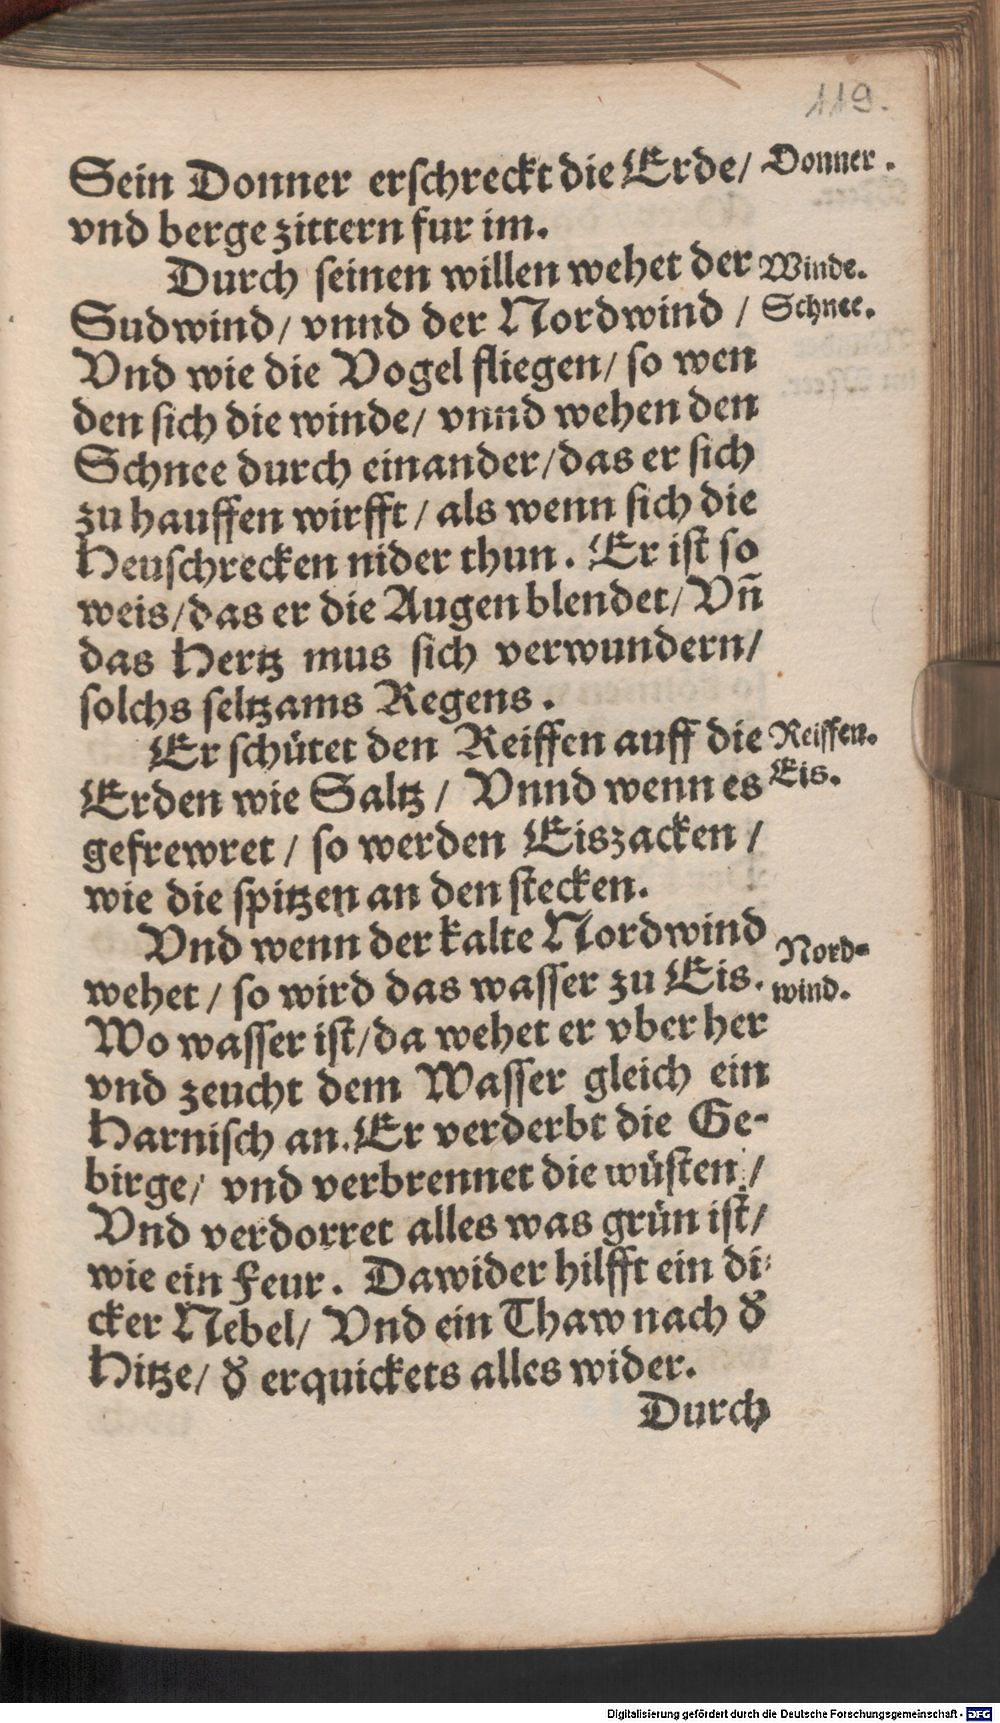 119.
Sein Donner erschreckt die Erde/ Donner.
vnd berge zittern fur im.
Durch seinen willen wehet der Winde.
Sudwind/ vnnd der Nordwind / Schnee.
Vnd wie die Vogel fliegen/ so wen
den sich die winde/ vnnd wehen den
Schnee durch einander/das er sich
zu hauffen wirfft / als wenn sich die
Heuschrecken nider thun. Er ist so
weis/das er die Augen blendet/ Vñ
das Hertz mus sich verwundern/
solchs seltzams Regens.
Er schütet den Reiffen auff die Reiffen.
Erden wie Saltz / Vnnd wenn es Eis.
gefrewret / so werden Eiszacken /
wie die spitzen an den stecken.
Vnd wenn der kalte Nordwind Nord-
wehet / so wird das wasser zu Eis. wind.
Wo wasser ist/da wehet er vber her
vnd zeucht dem Wasser gleich ein
Harnisch an. Er verderbt die Ge-
birge/ vnd verbrennet die wüsten /
Vnd verdorret alles was grün ist/
wie ein Feur. Dawider hilfft ein di-
cker Nebel/ Vnd ein Thaw nach d̕
Hitze/ d̕ erquickets alles wider.
Durch
Digitalisierung gefördert durch die Deutsche Forschungsgemeinschaft - DFG